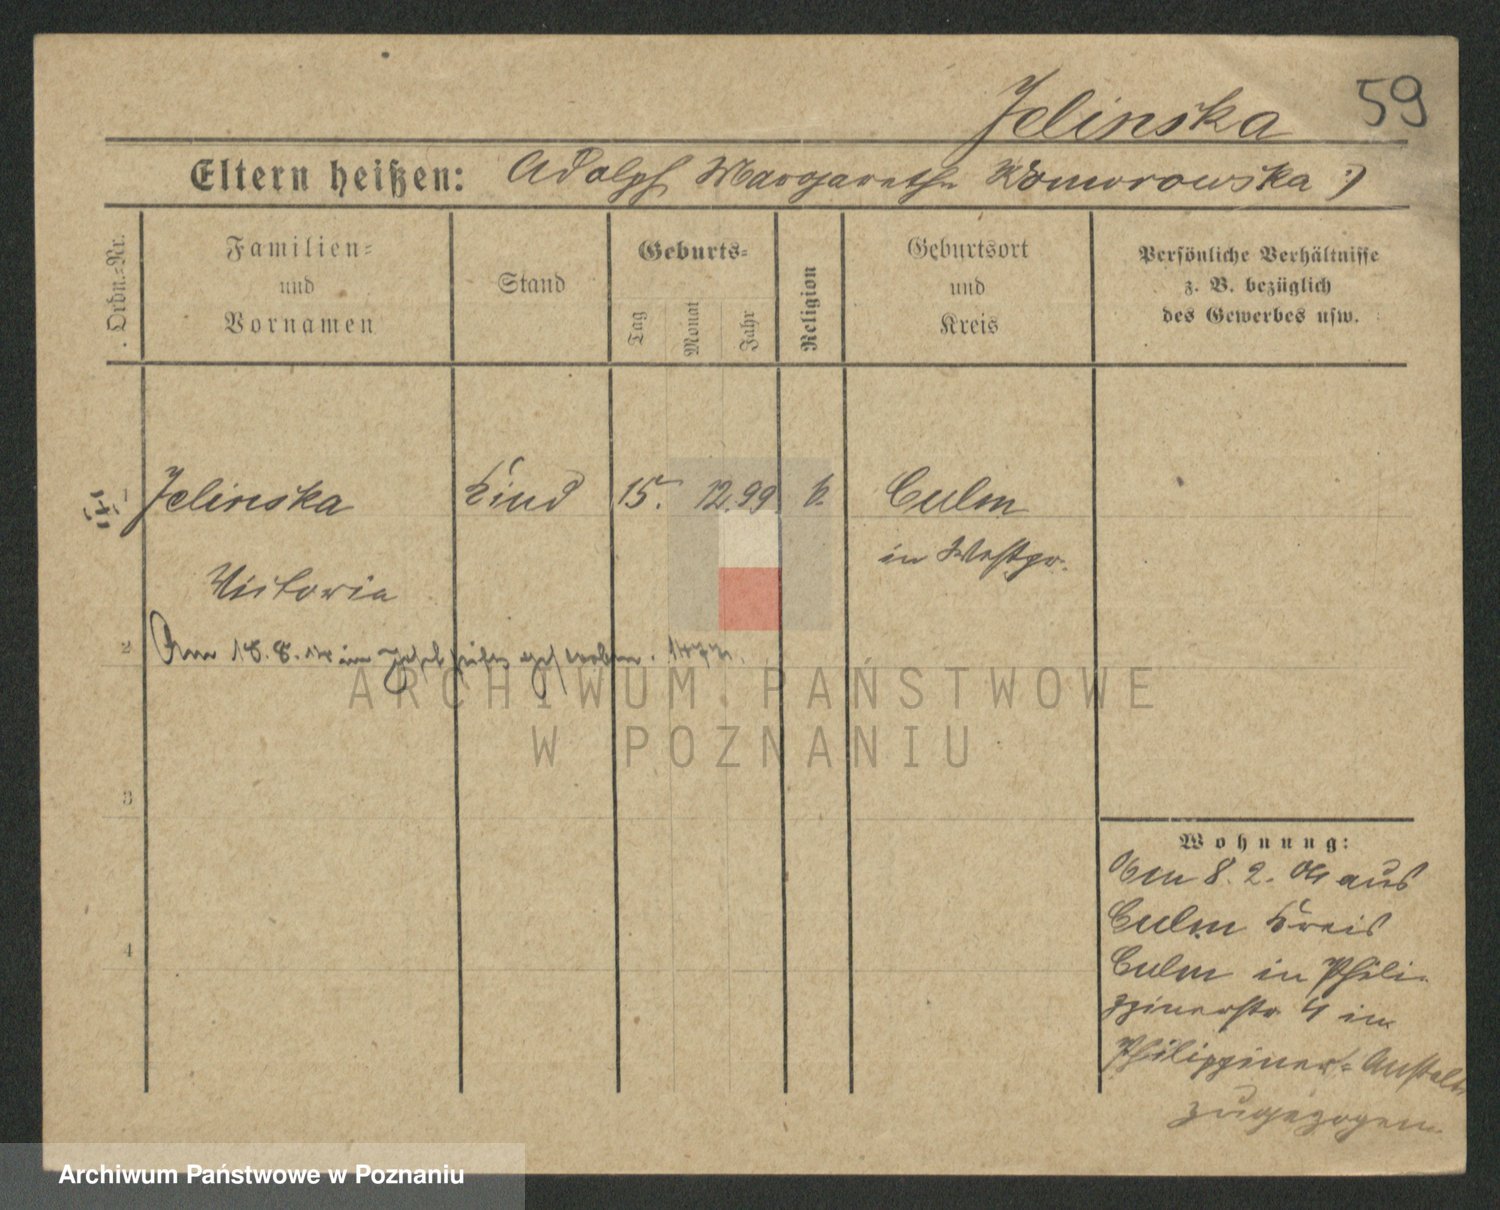 59
Jelinska
Eltern heißen: Adolph Margarethe Komorowska
Ordn.-Nr.
Familien-
und
Vornamen
Stand
Geburts-
Tag
Monat
Jahr
Religion
Geburtsort
und
Kreis
Persönliche Verhältnisse
z. B. bezüglich
des Gewerbes usw.
1 Jelinska Kind 15. 12. 99 k. Culm
in Westpr.
Victoria
2 Am 18. 8. im gestorben.
3
4
Wohnung:
Am 8. 2. 04 aus
Culm Kreis
Culm in Phili-
ppinerstr 4 im
Philippiner-Anstalt
zugezogen.
ARCHIWUM PAŃSTWOWE
W POZNANIU
Archiwum Państwowe w Poznaniu